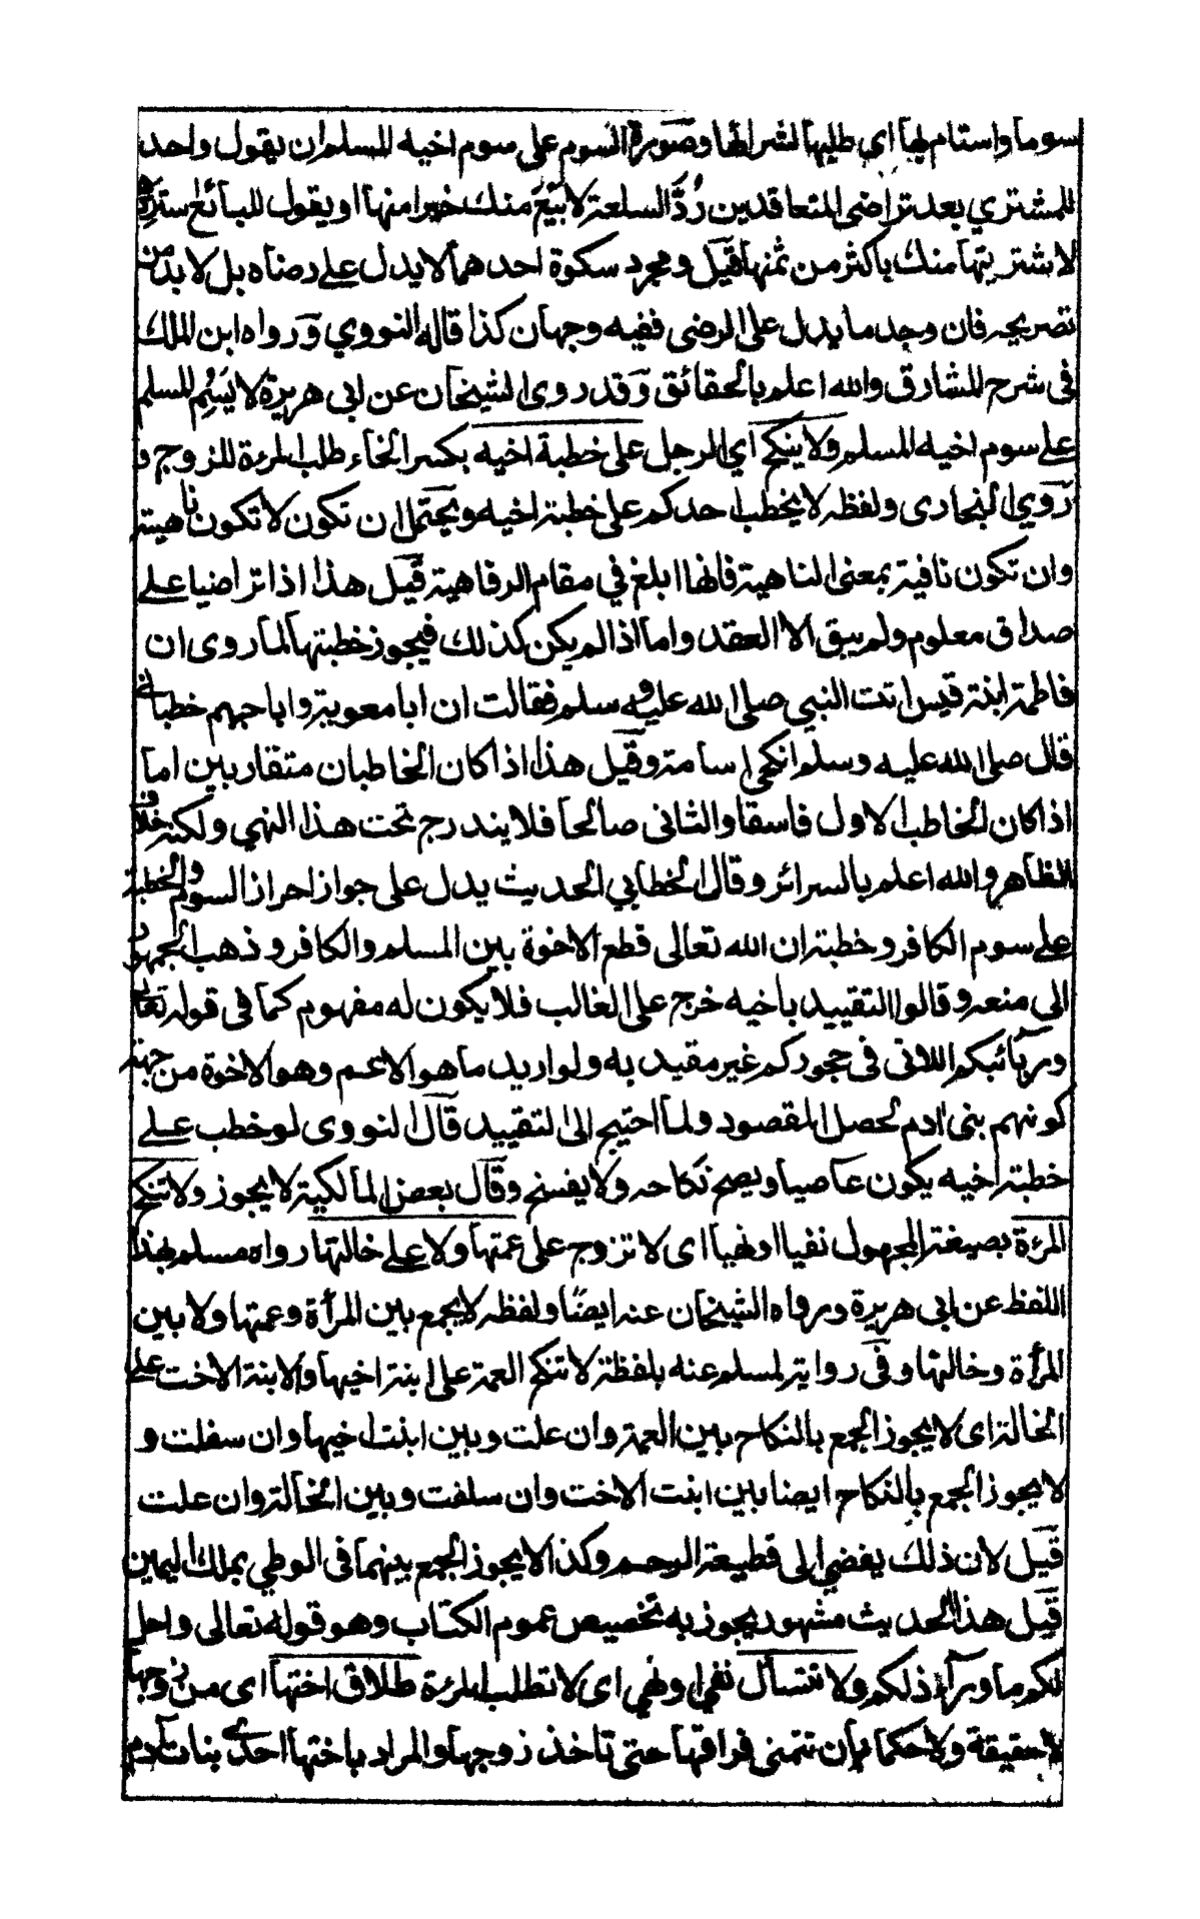 سوما واستام بها اي طلبها لشرائها وصورة السوم على سوم اخيه المسلم ان يقول واحد
للمشتري بعد تراضى المتعاقدين رُدَّ السلعة لابَيْعَ منك خيرا منها او يقول للبائع استرد
لاشتريتها منك باكثر من ثمنها قيل ومجرد سكوة احدهما لا يدل على رضاه بل لا بد من
تصريحه فان وجد ما يدل على الرضى ففيه وجهان كذا قاله النووي ورواه ابن الملك
فى شرح المشارق والله اعلم بالحقائق وقد روى الشيخان عن ابى هريرة لا يَسُمِ المسلم
على سوم اخيه المسلم ولا ينكح اي الرجل على خطبة اخيه بكسر الخاء طلب المرءة للزوج و
روي البخارى ولفظه لا يخطب احدكم على خطبة اخيه ويحتمل ان تكون لا تكون ناهية
وان تكون نافية بمعنى الناهية فانها ابلغ في مقام الرفاهية قيل هذا اذا تراضيا على
صداق معلوم ولم يبق الا العقد واما اذا لم يكن كذلك فيجوز خطبتها لما روى ان
فاطمة ابنة قيس اتت النبي صلى الله عليه وسلم فقالت ان ابا معوية وابا جهم خطبانى
قال صلى الله عليه وسلم انكحى اسامة وقيل هذا اذا كان الخاطبان متقاربين اما
اذا كان الخاطب الاول فاسقا والثانى صالحا فلا يندرج تحت هذا النهي ولكنه خلاف
الظاهر والله اعلم بالسرائر وقال الخطابي الحديث يدل على جواز احراز السوم والخطبة
على سوم الكافر وخطبته ان الله تعالى قطع الاخوة بين المسلم والكافر وذهب الجمهور
الى منعه وقالوا التقييد باخيه خرج على الغالب فلا يكون له مفهوم كما فى قوله تعالى
وربآئبكم اللاتى فى حجوركم غير مقيد به ولو اريد ما هو الاعم وهو الاخوة من جهة
كونهم بنى ادم لحصل المقصود ولما احتيج الى التقييد قال النووى لو خطب على
خطبة اخيه يكون عاصيا ويصح نكاحه ولا يفسخ وقال بعض المالكية لا يجوز ولا تنكح
المرءة بصيغة المجهول نفيا او نهيا اى لا تزوج على عمتها ولا على خالتها رواه مسلم بهذا
اللفظ عن ابى هريرة ورواه الشيخان عنه ايضًا ولفظه لا يجمع بين المرأة وعمتها ولا بين
المرأة وخالتها وفى رواية لمسلم عنه بلفظة لا تنكح العمة على ابنة اخيها ولا ابنة الاخت على
الخالة اى لا يجوز الجمع بالنكاح بين العمة وان علت وبين ابنت اخيها وان سفلت و
لا يجوز الجمع بالنكاح ايضا بين ابنت الاخت وان سلفت وبين الخالة وان علت
قيل لان ذلك يفضي الى قطيعة الرحم وكذا لا يجوز الجمع بينهما فى الوطي بملك اليمين
قيل هذا الحديث مشهود يجوز به تخصيص عموم الكتاب وهو قوله تعالى واحل
لكم ما ورآء ذلكم ولا تسأل نفي او نهي اى لا تطلب المرءة طلاق اختها اى من زوجها
لا حقيقة ولا حكما بان تتمنى فراقها حتى تاخذ زوجها والمراد باختها احدى بنات آدم